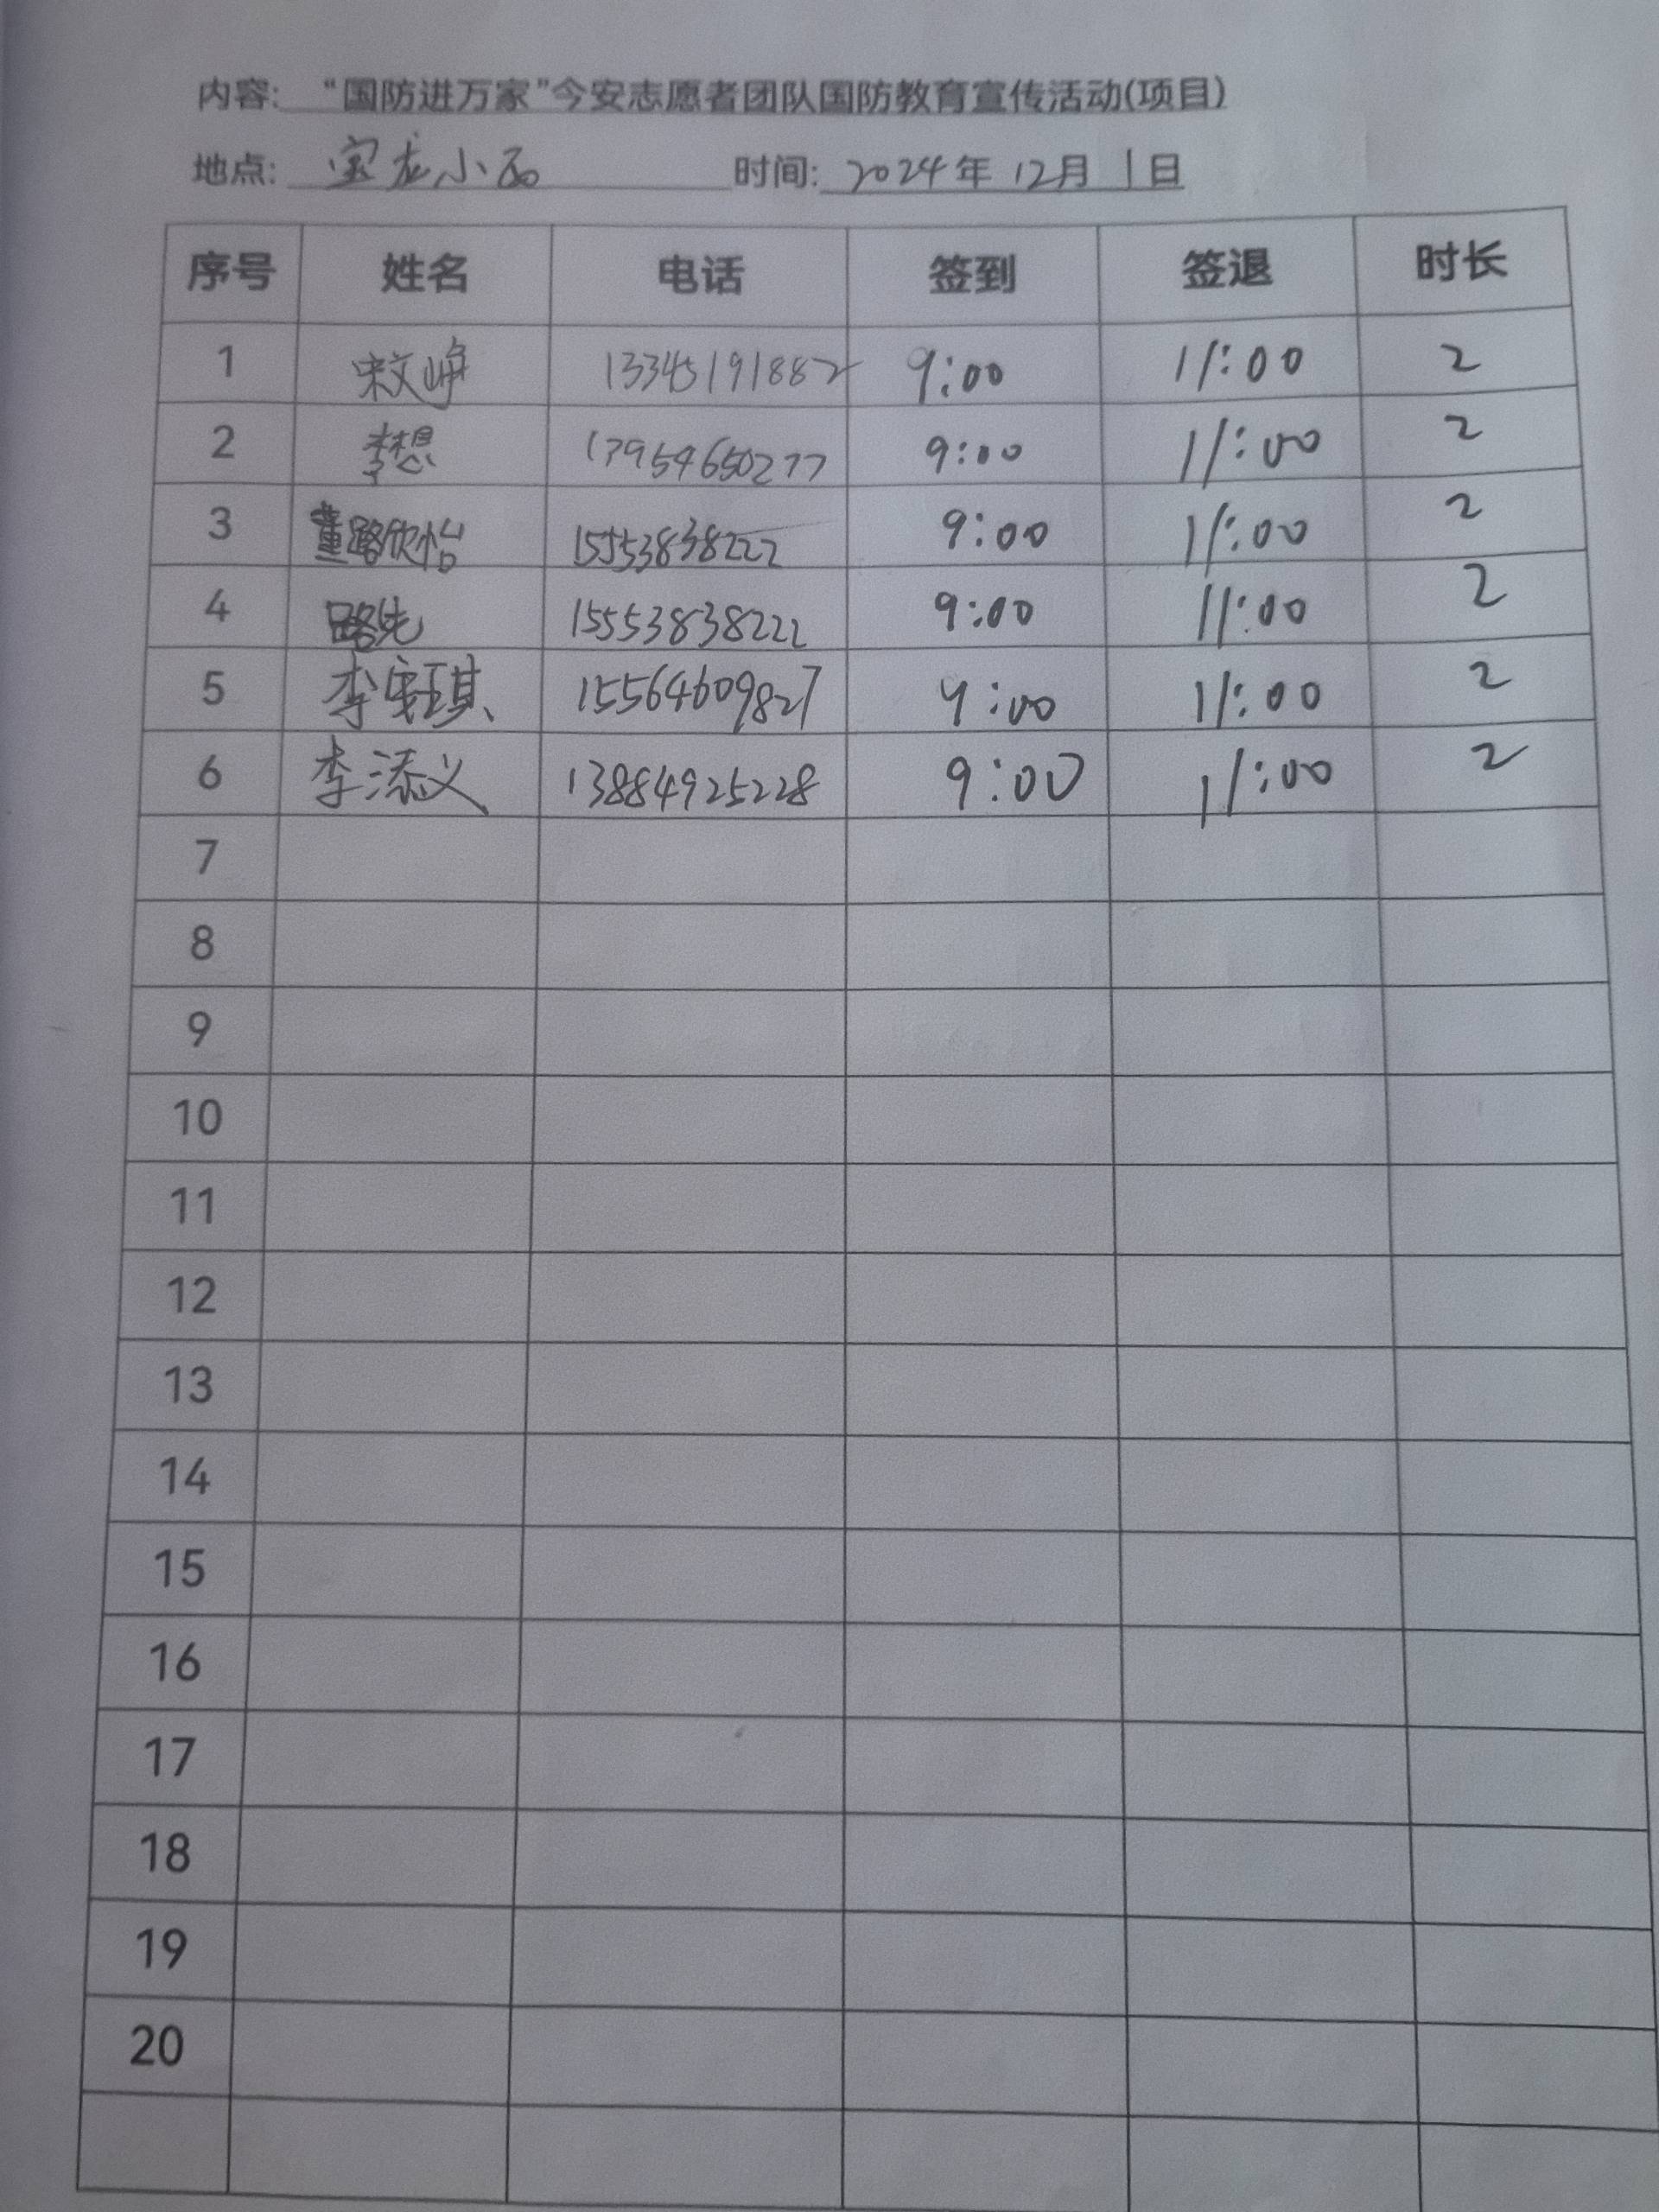 内容: “国防进万家”今安志愿者团队国防教育宣传活动(项目)
地点: 宝龙小区 时间: 2024年 12月 1日
序号 姓名 电话 签到 签退 时长
1 宋文峥 13345191882 9:00 11:00 2
2 李想 17954650277 9:00 11:00 2
3 董路欣怡 15553838222 9:00 11:00 2
4 路先 15553838222 9:00 11:00 2
5 李安琪 15564609827 9:00 11:00 2
6 李添义 13884925228 9:00 11:00 2
7
8
9
10
11
12
13
14
15
16
17
18
19
20